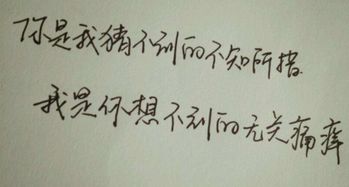 你是我猜不到的不知所措
我是你想不到的无关痛痒